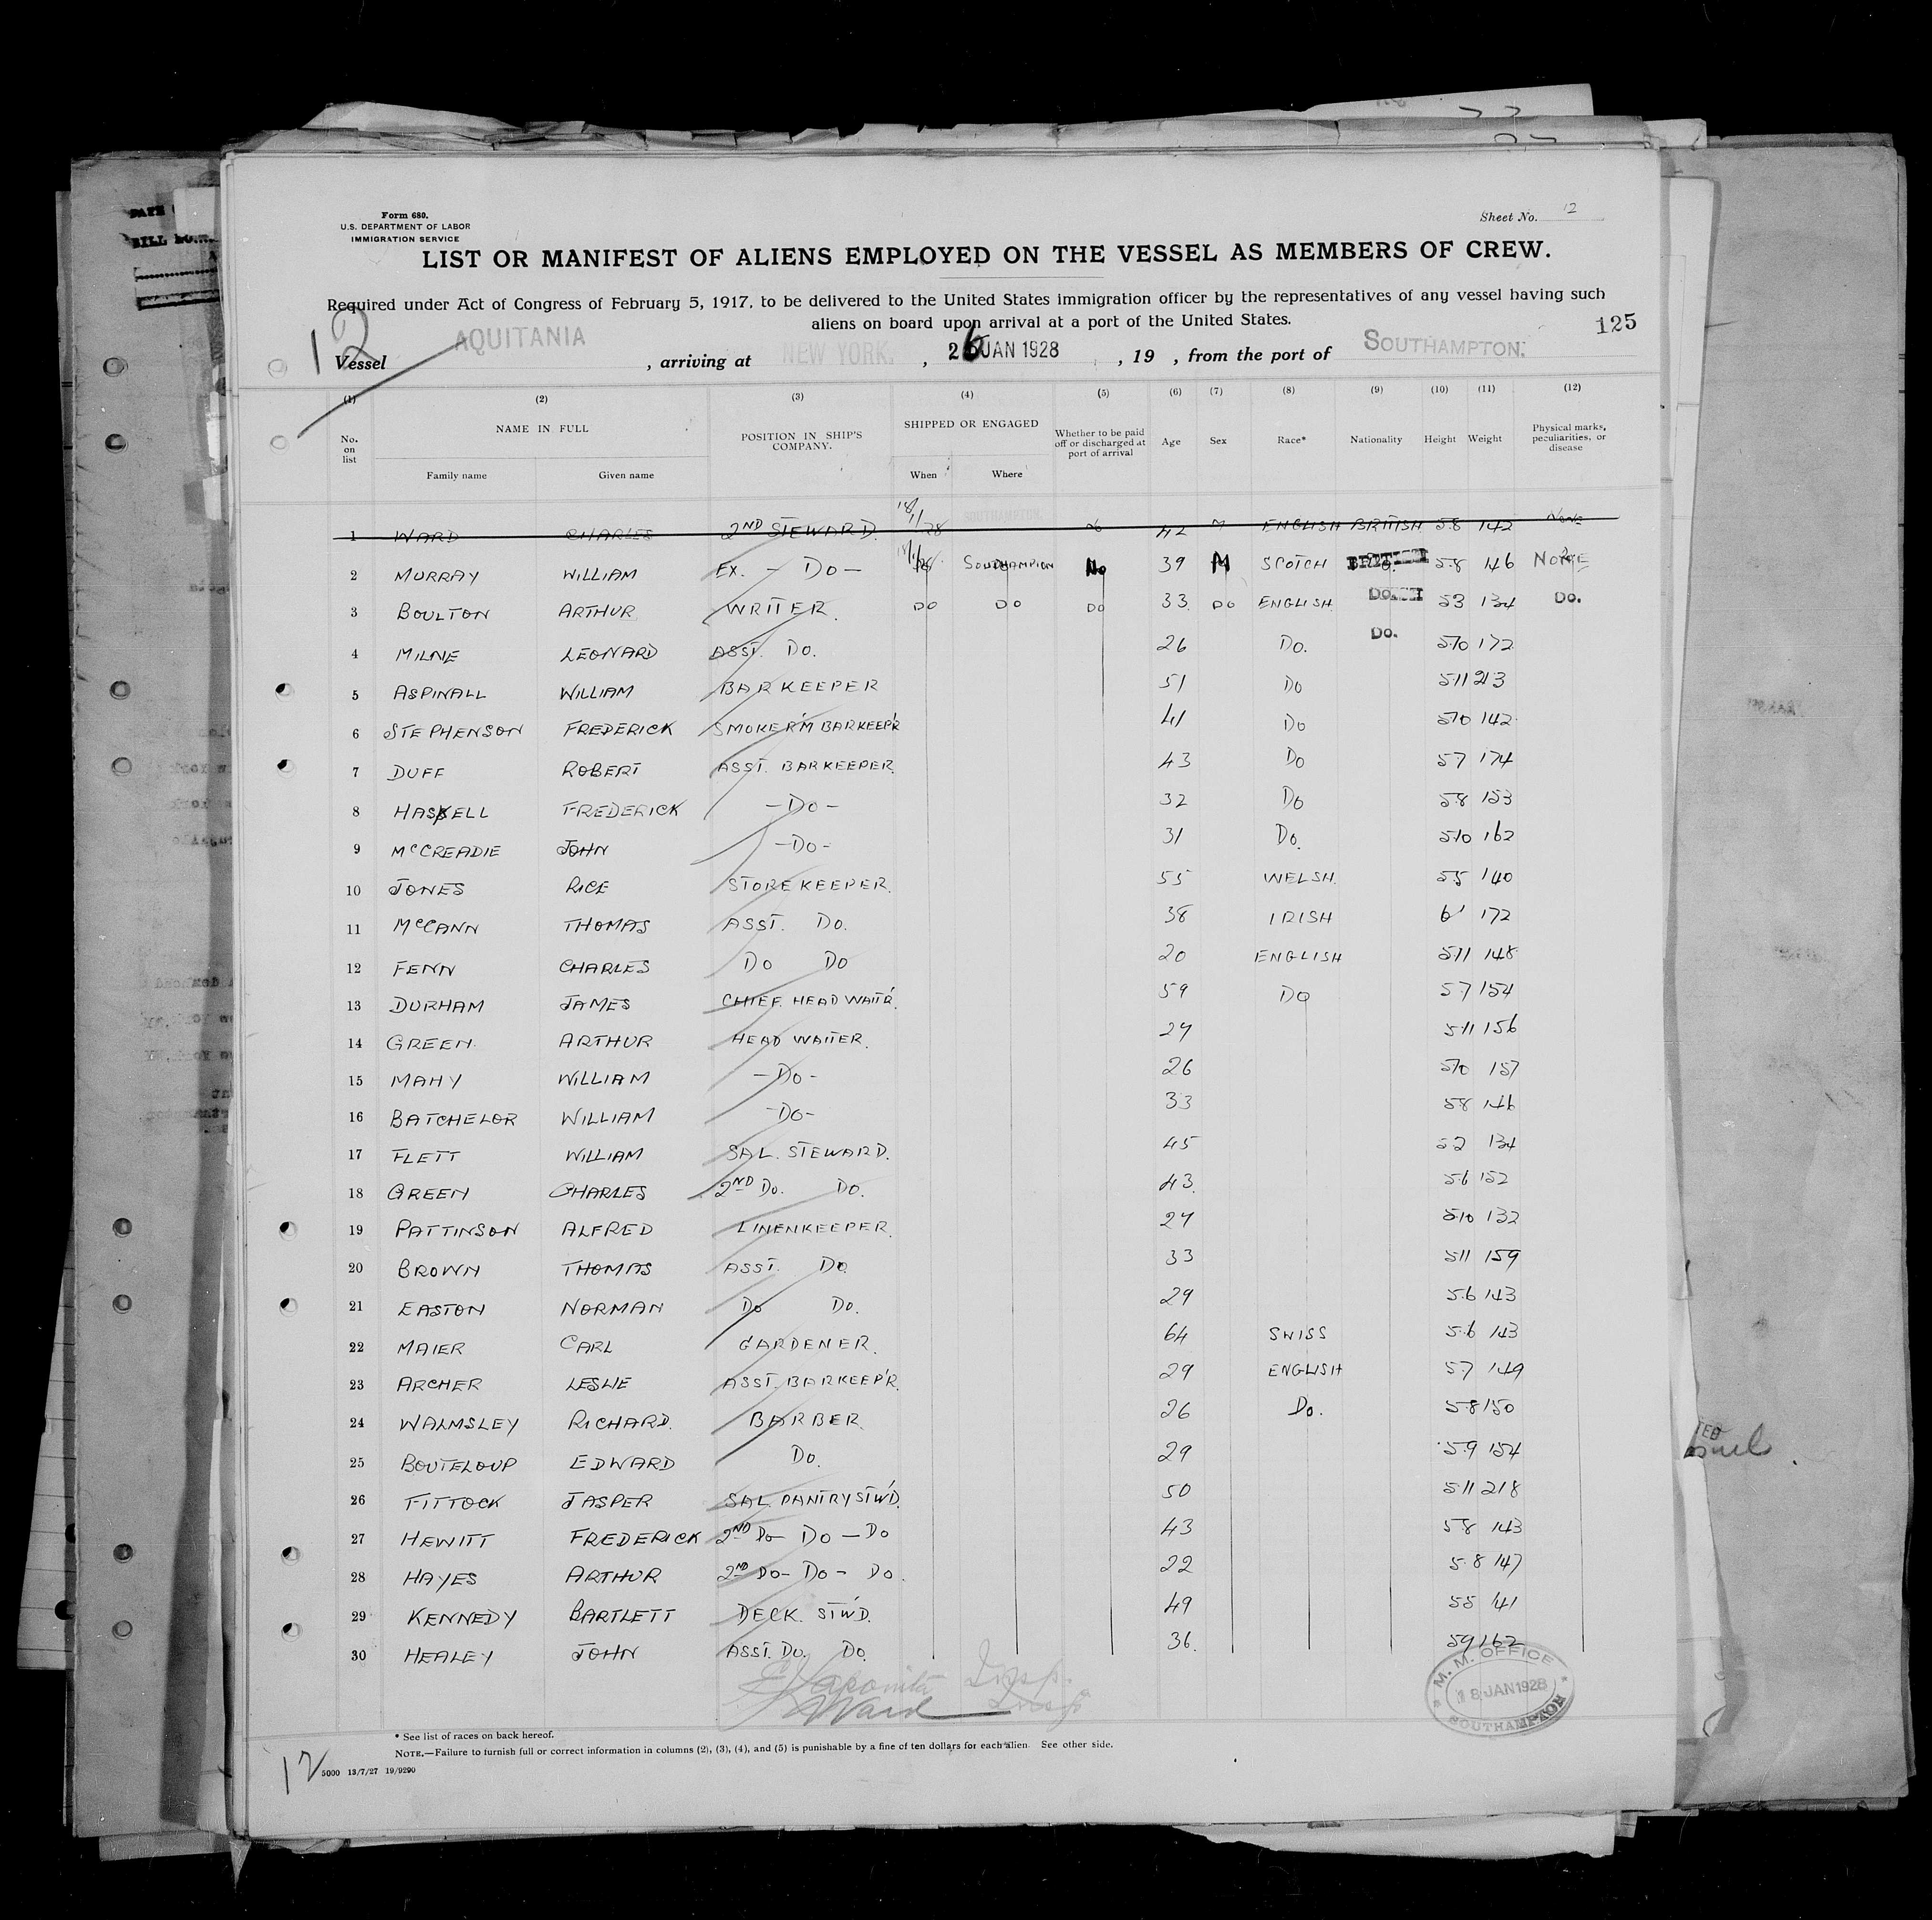 Form 680.
U.S. DEPARTMENT OF LABOR
IMMIGRATION SERVICE
Sheet No. 12
LIST OR MANIFEST OF ALIENS EMPLOYED ON THE VESSEL AS MEMBERS OF CREW.
Required under Act of Congress of February 5, 1917, to be delivered to the United States immigration officer by the representatives of any vessel having such
aliens on board upon arrival at a port of the United States.
125
12
Vessel AQUITANIA, arriving at NEW YORK., 26 JAN 1928, 19 , from the port of SOUTHAMPTON.
(1) (2) (3) (4) (5) (6) (7) (8) (9) (10) (11) (12)
No. on list NAME IN FULL POSITION IN SHIP'S COMPANY. SHIPPED OR ENGAGED Whether to be paid off or discharged at port of arrival Age Sex Race* Nationality Height Weight Physical marks, peculiarities, or disease
Family name Given name When Where
1 WARD CHARLES 2ND STEWARD. 18/1/28 SOUTHAMPTON 42 M ENGLISH BRITISH 5.8 142 NONE
2 MURRAY WILLIAM EX. - DO - 18/1/28 SOUTHAMPTON No 39 M SCOTCH BRITISH 5.8 146 NONE
3 BOULTON ARTHUR WRITER. DO DO DO 33 DO ENGLISH DO. 53 134 DO.
4 MILNE LEONARD ASST. DO. 26 DO. DO. 5.10 172
5 ASPINALL WILLIAM BARKEEPER 51 DO 511 213
6 STEPHENSON FREDERICK SMOKER'M BARKEEP'R 41 DO 5.10 142
7 DUFF ROBERT ASST. BARKEEPER. 43 DO 57 174
8 HASKELL FREDERICK - DO - 32 DO 5.8 153
9 McCREADIE JOHN - DO - 31 DO. 5.10 162
10 JONES RICE STOREKEEPER. 55 WELSH. 55 140
11 McCANN THOMAS ASST. DO. 38 IRISH 6' 172
12 FENN CHARLES DO DO 20 ENGLISH 5.11 148
13 DURHAM JAMES CHIEF HEAD WAIT'R. 59 DO 57 154
14 GREEN ARTHUR HEAD WAITER. 27 5.11 156
15 MAHY WILLIAM - DO - 26 5.10 157
16 BATCHELOR WILLIAM - DO - 33 58 146
17 FLETT WILLIAM SAL. STEWARD. 45 52 134
18 GREEN CHARLES 2ND DO. DO. 43. 5.6 152
19 PATTINSON ALFRED LINENKEEPER. 27 5.10 132
20 BROWN THOMAS ASST. DO 33 511 159
21 EASTON NORMAN DO DO. 29 5.6 143
22 MAIER CARL GARDENER. 64 SWISS 5.6 143
23 ARCHER LESLIE ASST. BARKEEP'R. 29 ENGLISH 5.7 149
24 WALMSLEY RICHARD. BARBER. 26 DO. 5.8 150
25 BOUTELOUP EDWARD DO. 29 5.9 154
26 FITTOCK JASPER SAL. PANTRY ST'W'D. 50 5.11 218
27 HEWITT FREDERICK 2ND DO - DO - DO 43 58 143
28 HAYES ARTHUR 2ND DO - DO - DO. 22 5.8 147
29 KENNEDY BARTLETT DECK. ST'W'D. 49 55 141
30 HEALEY JOHN ASST. DO. DO. 36. 59 162
Insp.
Ward Insp
M. M. OFFICE
18 JAN 1928
SOUTHAMPTON
* See list of races on back hereof.
NOTE.—Failure to furnish full or correct information in columns (2), (3), (4), and (5) is punishable by a fine of ten dollars for each alien. See other side.
12
5000 13/7/27 19/9290